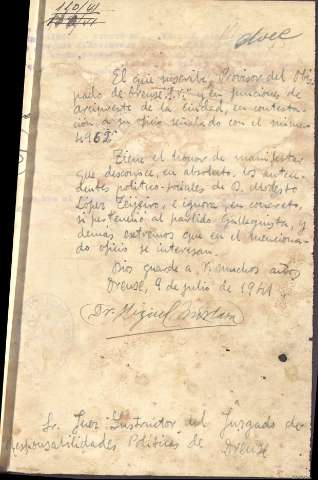 110/41
doce
El que suscribe, Provisor del Obis
pado de Orense, y en funciones de
arcipreste de la Ciudad, en contesta
ción a su oficio señalado con el número
4962
Tiene el honor de manifestar
que desconoce, en absoluto, los antece
dentes político-sociales de D. Modesto
López Teijeiro, e ignora, en concreto,
si perteneció al partido Galleguista, y
demás extremos que en el menciona
do oficio se interesan.
Dios guarde a V. muchos años
Orense, 9 de julio de 1941
Dr. Miguel
Sr. Juez Instructor del Juzgado de
Responsabilidades Políticas de Orense